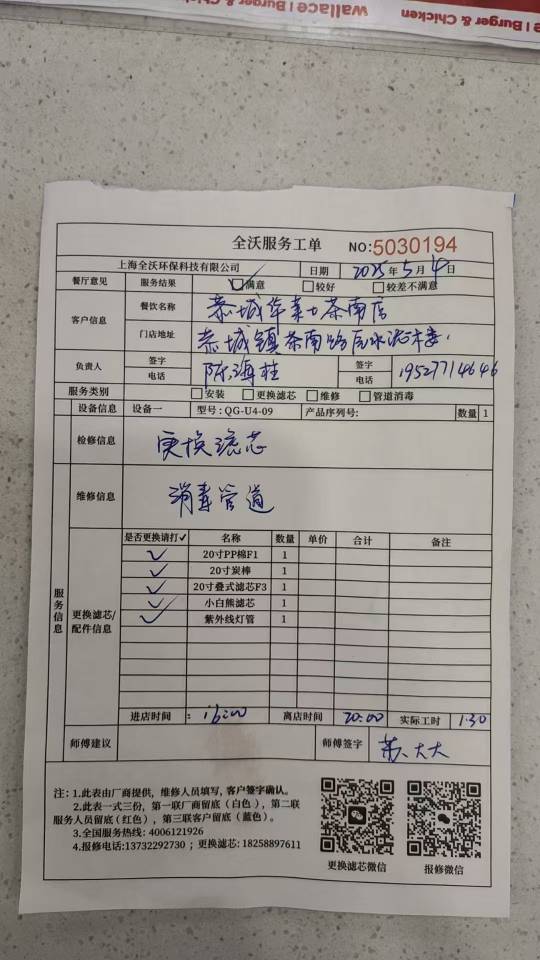 wallace | Burger & Chicken
e | Burger & Chicken
全沃服务工单 NO:5030194
上海全沃环保科技有限公司 日期 2025年5月4日
餐厅意见 服务结果 ✓满意 □较好 □较差不满意
客户信息 餐饮名称 恭城华莱士茶南店
门店地址 恭城镇茶南路
负责人 签字 陈海桂 签字
电话 电话 19527714646
服务类别 □安装 □更换滤芯 □维修 □管道消毒
设备信息 设备一 型号:QG-U4-09 产品序列号: 数量 1
检修信息 更换滤芯
维修信息 消毒管道
服务信息
更换滤芯/配件信息
是否更换请打✓ 名称 数量 单价 合计 备注
✓ 20寸PP棉F1 1
✓ 20寸炭棒 1
✓ 20寸叠式滤芯F3 1
✓ 小白熊滤芯 1
✓ 紫外线灯管 1
进店时间: 16:00 离店时间 20:00 实际工时 1.30
师傅建议 师傅签字
注:1.此表由厂商提供,维修人员填写,客户签字确认。
2.此表一式三份,第一联厂商留底(白色),第二联
服务人员留底(红色),第三联客户留底(蓝色)。
3.全国服务热线: 4006121926
4.报修电话:13732292730 ; 更换滤芯: 18258897611
更换滤芯微信 报修微信